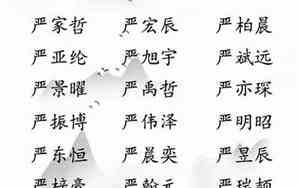 严家哲 严宏辰 严柏晨
严亚纶 严旭宇 严斌远
严景曜 严禹哲 严亦琛
严振博 严伟泽 严明昭
严东恒 严晨奕 严昱辰
严梓豪 严翰元 严瑞颉